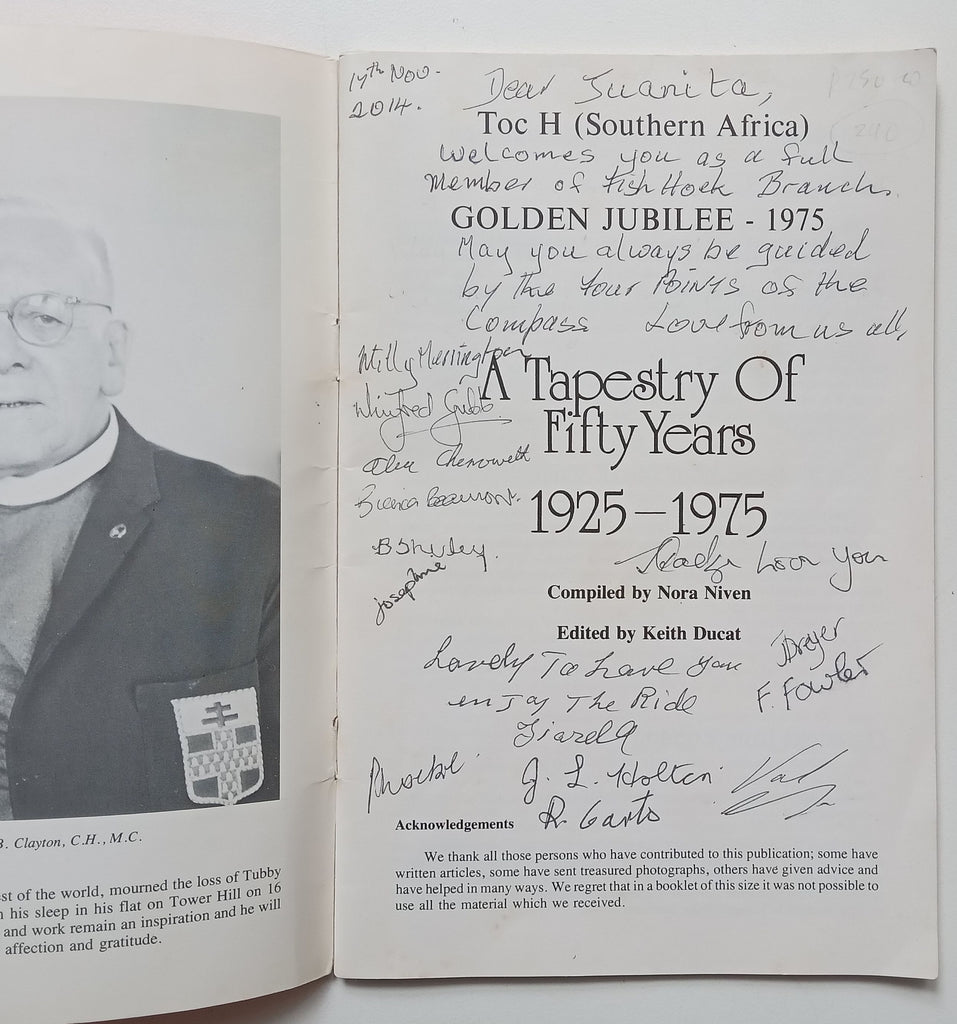 B. Clayton, C.H., M.C.
est of the world, mourned the loss of Tubby
his sleep in his flat on Tower Hill on 16
and work remain an inspiration and he will
affection and gratitude.
17th Nov.
2014.
Dear Juanita,
Toc H (Southern Africa)
Welcomes you as a full
Member of Fish Hoek Branch.
GOLDEN JUBILEE - 1975
May you always be guided
by the Four Points of the
Compass Love from us all,
Milly Merrington
A Tapestry Of
Winifred Gubb
Fifty Years
Alex Chenowett
Bianca Beaumont.
1925–1975
B Shirley.
Josephine
you
Compiled by Nora Niven
Edited by Keith Ducat
Lovely To have you
enjoy The Ride
J Dreyer
F. Fowler
Phoebe
J. L. Holten
Val
Acknowledgements
We thank all those persons who have contributed to this publication; some have
written articles, some have sent treasured photographs, others have given advice and
have helped in many ways. We regret that in a booklet of this size it was not possible to
use all the material which we received.